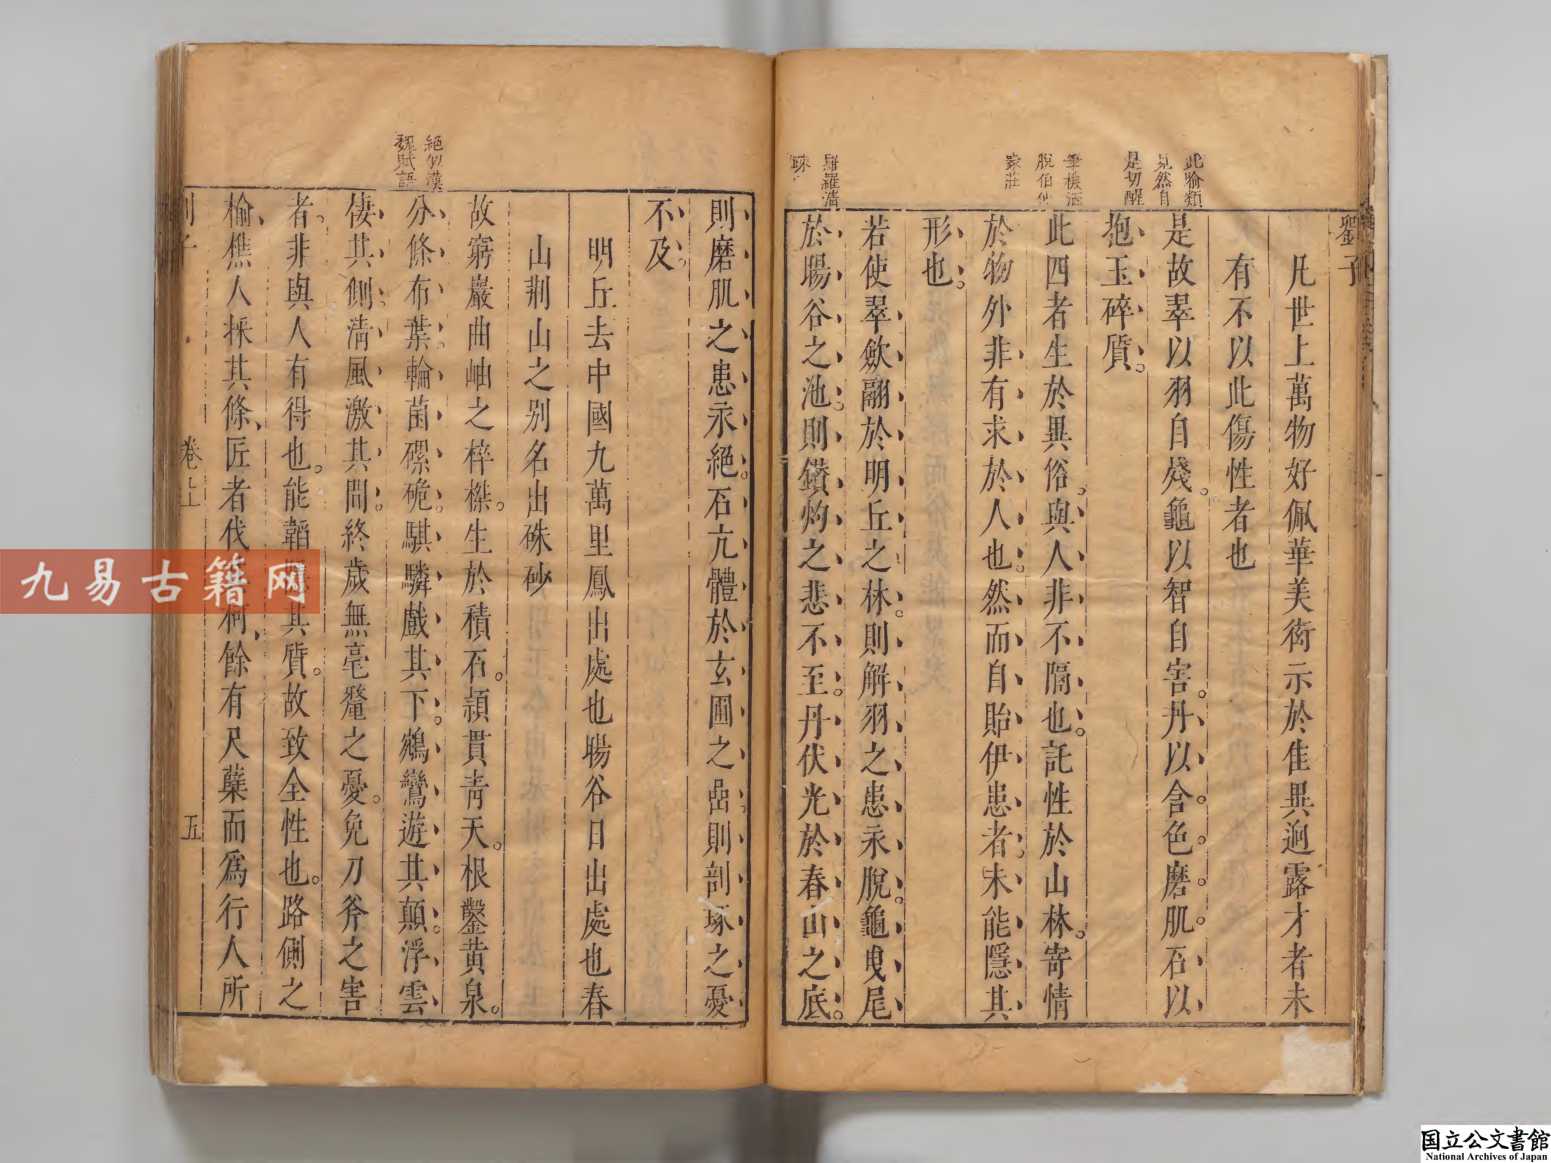 劉子
凡世上萬物好佩華美衒示於隹異迥露才者未
有不以此傷性者也
是故翠以羽自殘龜以智自害丹以含色磨肌石以
抱玉碎質
此四者生於異俗與人非不隔也託性於山林寄情
於物外非有求於人也然而自貽伊患者未能隱其
形也
若使翠斂翮於明丘之林則解羽之患永脫龜曳尾
於暘谷之池則鑽灼之悲不至丹伏光於春山之底
此喻類
見然自
是切醒
脫伯仲
蒙莊
則磨肌之患永絕石亢體於玄圃之嵒則剖琢之憂
不及
明丘去中國九萬里鳳出處也暘谷日出處也春
山荆山之别名出硃砂
故窮巖曲岫之梓櫟生於積石頴貫青天根鑿黄泉
分條布葉輪菌磥硊騏驎戲其下鵷鸞遊其顛浮雲
棲其側清風激其間終歲無毫釐之憂免刀斧之害
者非與人有得也能韜隱其質故致全性也路側之
榆樵人採其條匠者伐其柯餘有尺蘖而爲行人所
絕似漢
魏賦語
卷上
五
九易古籍网
国立公文書館
National Archives of Japan